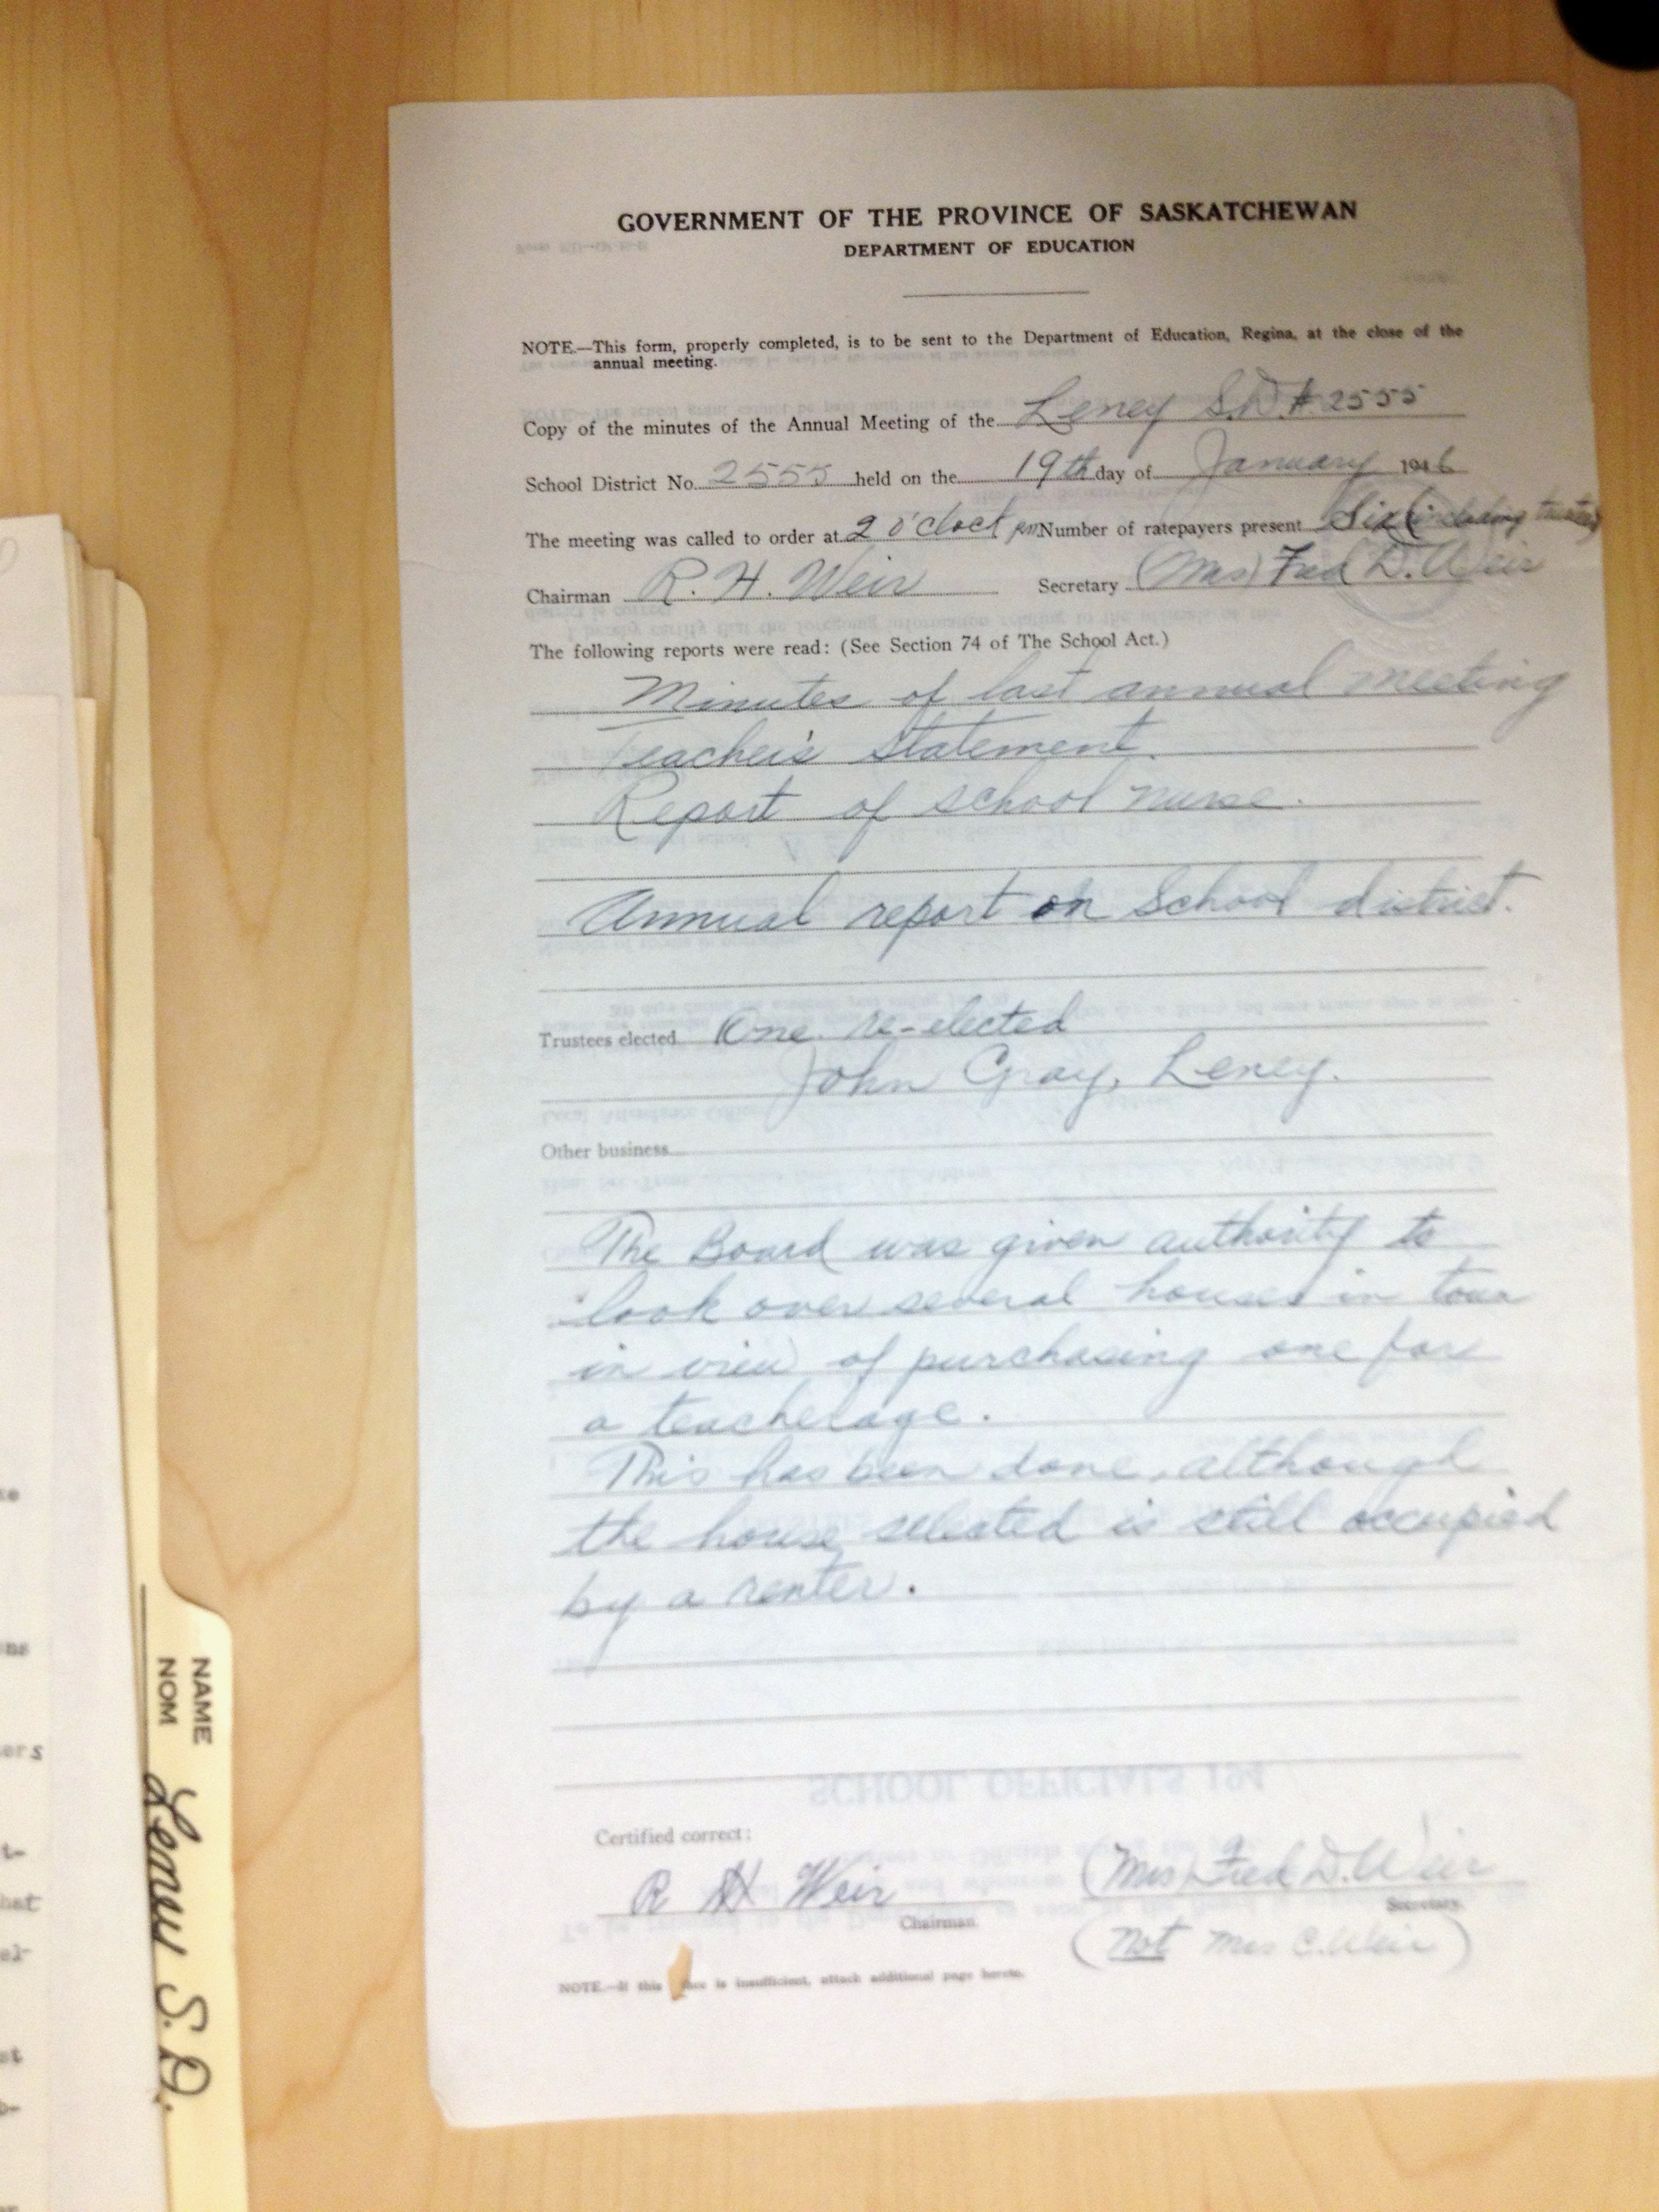 GOVERNMENT OF THE PROVINCE OF SASKATCHEWAN
DEPARTMENT OF EDUCATION
NOTE.—This form, properly completed, is to be sent to the Department of Education, Regina, at the close of the
annual meeting.
Copy of the minutes of the Annual Meeting of the Leney S.D. # 2555
School District No. 2555 held on the 19th day of January 1946
The meeting was called to order at 2 o'clock pm Number of ratepayers present Six (including trustees)
Chairman R. H. Weir Secretary (Mrs) Fred D. Weir
The following reports were read: (See Section 74 of The School Act.)
Minutes of last annual meeting
Teacher's Statement.
Report of school nurse.
Annual report on School district.
Trustees elected One re-elected
John Gray, Leney.
Other business
The Board was given authority to
look over several houses in town
in view of purchasing one for
a teacherage.
This has been done, although
the house selected is still occupied
by a renter.
SCHOOL OFFICIALS 194
Certified correct:
R H Weir (Mrs) Fred D. Weir
Chairman. Secretary.
(Not Mrs C. Weir)
NOTE.—If this is insufficient, attach additional page hereto.
NAME
NOM
Leney S. D.